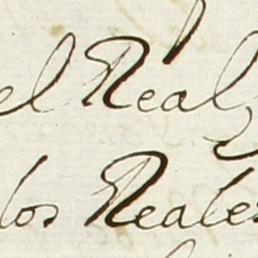 el Real
los Reales